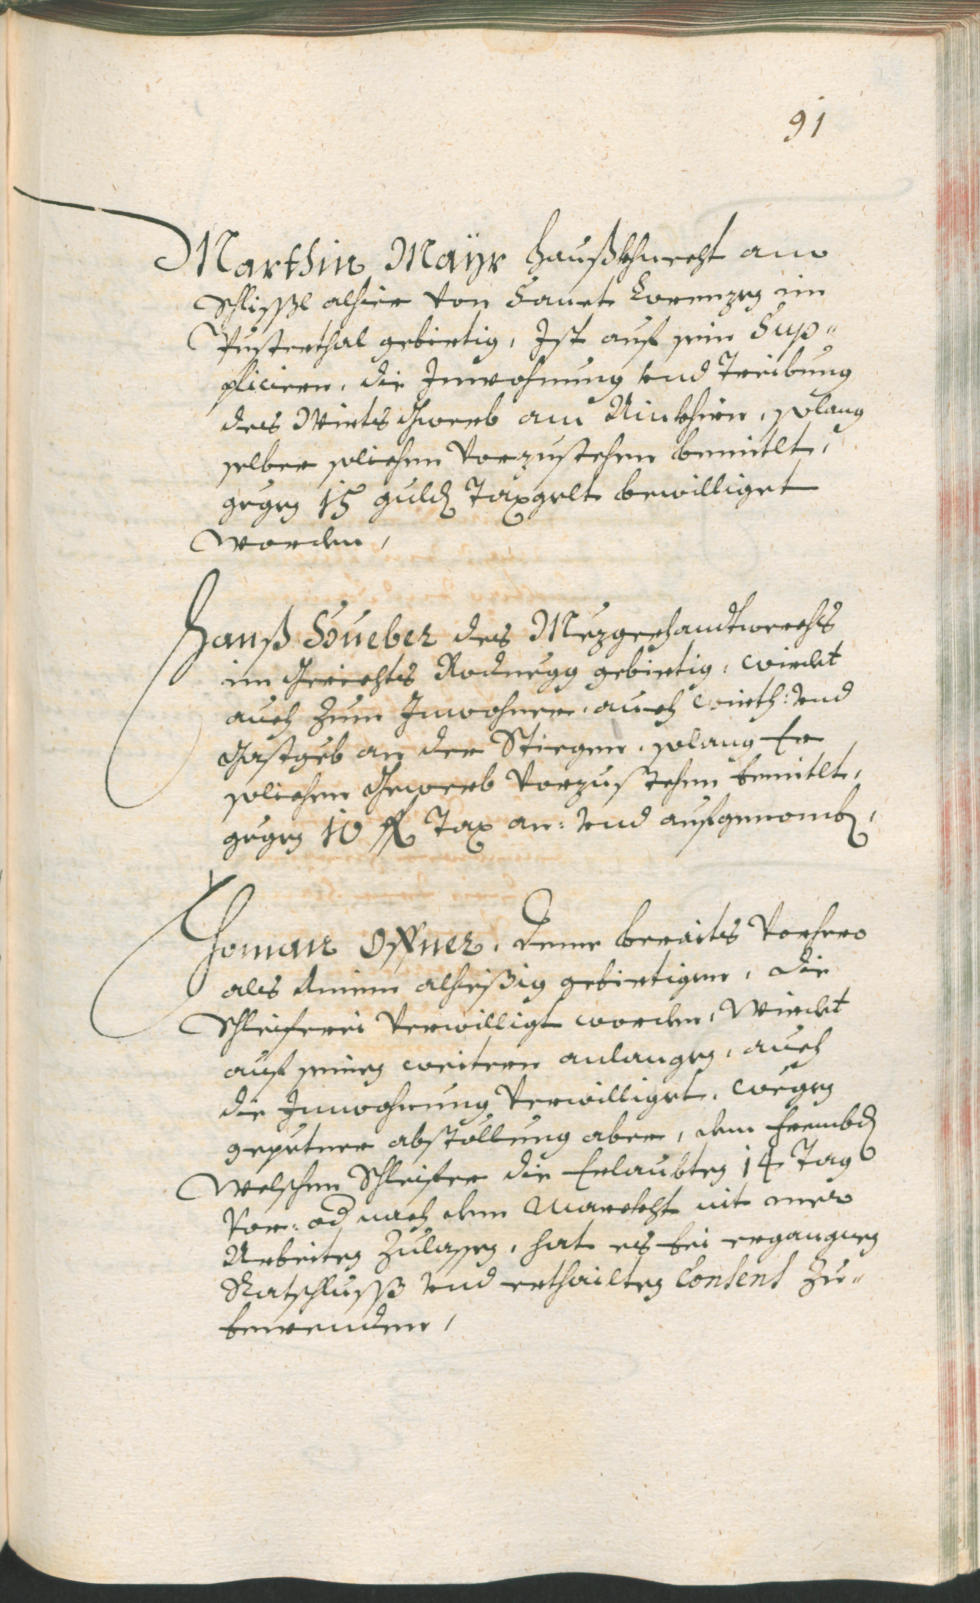 91
Marthin Mayr Haußkhnecht am
Schlißl alhier von Sanct Lorenzen im
Pusterthal gebirtig, Ist auf sein Sup-
pliciern, die Inwohnung vnd Treibung
des Wirts Gwerb am Ainkhirn, solang
selber solichen vorzustehen bemitlt,
gegen 15 guld Taxgelt bewilliget
worden,
Hanß Hueber des Mezgerhandtwerchs
im Gerichts Rodnegg gebirtig, wirdet
auch zum Inwohner, auch Wirth: vnd
Gastgeb an der Stiegen, solang Er
solichem Gewerb vorzustehen bemitlt,
gegen 10 fl Tax an: vnd aufgenomb,
Thoman Offner, deme beraits vorhero
als Ainem alhießig gebirtigen, die
Schleiferei verwilligt worden, Wirdet
auf seinen weitern anlangen, auch
die Inwohnung verwilliget, wegen
gepetner abstöllung aber, dem frembd
Welschen Schleifer die Erlaubten 14 Tag
vor: od nach dem Marckht nit mer
Arbeiten zulassen, hat es bei ergangnen
Ratschlusß vnd erthailten Consens zu-
bewenden,